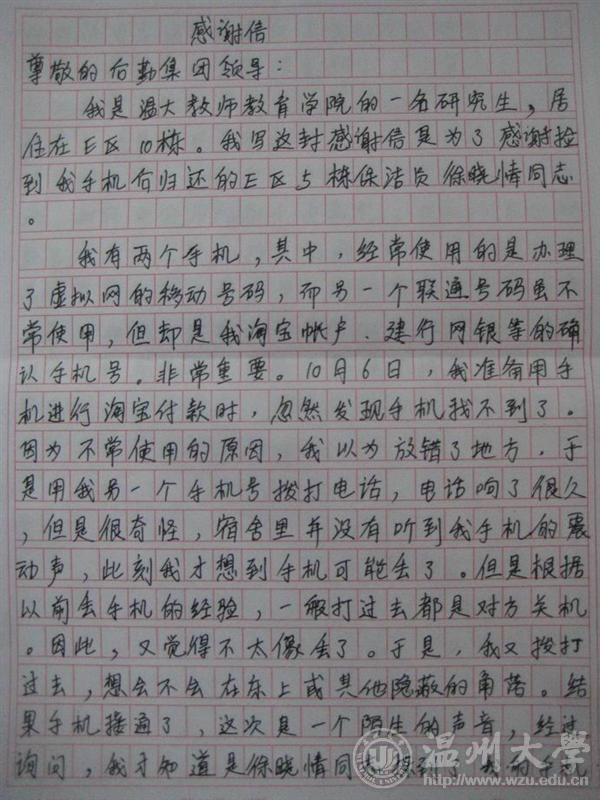 感谢信
尊敬的后勤集团领导：
我是温大教师教育学院的一名研究生，居
住在E区10栋。我写这封感谢信是为了感谢捡
到我手机后归还的E区5栋保洁员徐晓情同志
。
我有两个手机，其中，经常使用的是办理
了虚拟网的移动号码，而另一个联通号码虽不
常使用，但却是我淘宝帐户．建行网银等的确
认手机号。非常重要。10月6日，我准备用手
机进行淘宝付款时，忽然发现手机找不到了。
因为不常使用的原因，我以为放错了地方．于
是用我另一个手机号拨打电话，电话响了很久
，但是很奇怪，宿舍里并没有听到我手机的震
动声，此刻我才想到手机可能丢了。但是根据
以前丢手机的经验，一般打过去都是对方关机
。因此，又觉得不太像丢了。于是，我又拨打
过去，想会不会在车上或其他隐蔽的角落。结
果手机接通了，这次是一个陌生的声音，经过
询问，我才知道是徐晓情同志
温州大学
www.wzu.edu.cn